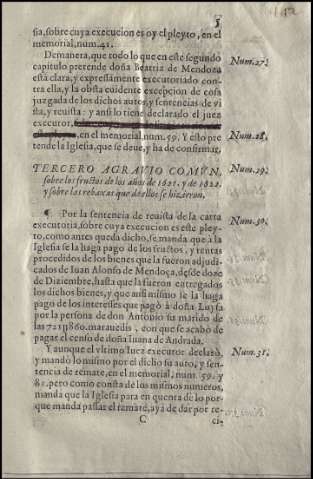 5
sia, sobre cuya execucion es oy el pleyto, en el
memorial, num. 41.
Demanera, que todo lo que en este segundo
capitulo pretende doña Beatriz de Mendoça
està clara, y expressamente executoriado con-
tra ella, y la obsta euidente excepcion de cosa
juzgada de los dichos autos, y sentencias de vi
sta, y reuista: y ansi lo tiene declarado el juez
executor
, en el memorial, num. 59. Y esto pre
tende la Iglesia, que se deue, y ha de confirmar.
TERCERO AGRAVIO COMVN,
sobre los frutos de los años de 1621. y de 1622.
y sobre las rebaxas que de ellos se hizieron.
¶ Por la sentencia de reuista de la carta
executoria, sobre cuya execucion es este pley-
to, como antes queda dicho, se manda que à la
Iglesia se la haga pago de los frutos, y rentas
procedidos de los bienes que la fueron adjudi
cados de Iuan Alonso de Mendoça, desde doze
de Diziembre, hasta que la fueron entregados
los dichos bienes, y que ansi mismo se la haga
pago de los interesses que pagò à doña Luysa
por la persona de don Antonio su marido de
las 721U860. marauedis, con que se acabò de
pagar el censo de doña Iuana de Andrada.
Y aunque el vltimo juez executor declarò,
y mandò lo mismo por el dicho su auto, y sen-
tencia de remate, en el memorial, num. 59. y
81. pero como consta de los mismos numeros,
manda que la Iglesia para en quenta de lo por-
que manda passar el remate, aya de dar por re-
C
ci-
Num. 27.
Num. 28.
Num. 29.
Num. 30.
Num. 31.